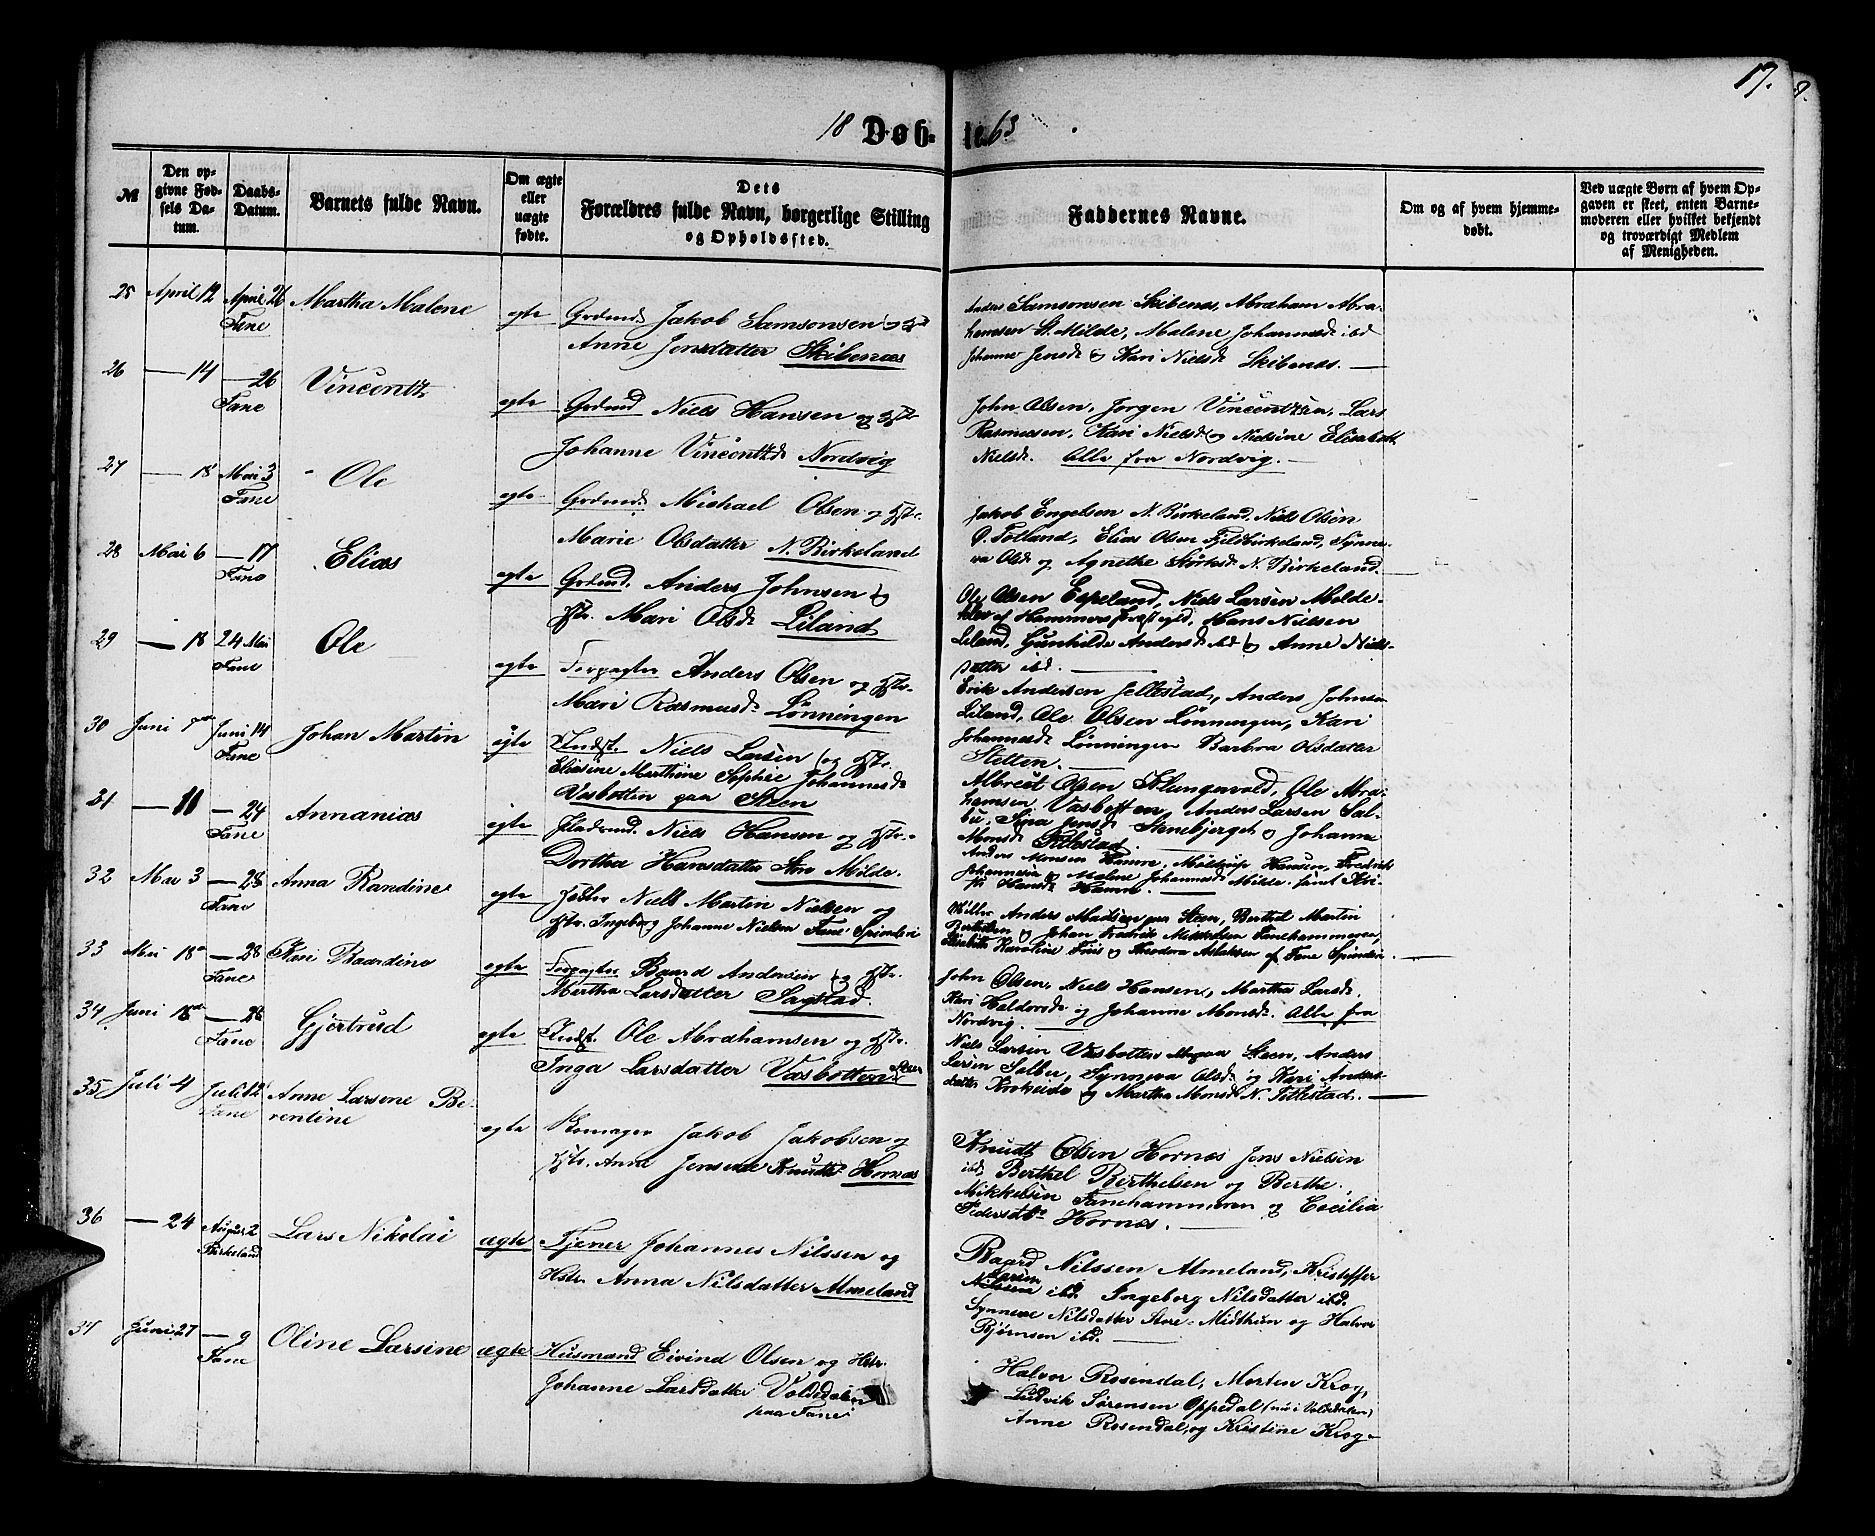 17.
18 Døb- te. 63
№
Den op-
givne Fød-
sels Da-
tum.
Daabs-
Datum.
Barnets fulde Navn.
Om ægte
eller
uægte
fødte.
Dets
Forældres fulde Navn, borgerlige Stilling
og Opholdssted.
Faddernes Navne.
Om og af hvem hjemme-
døbt.
Ved uægte Børn af hvem Op-
gaven er skeet, enten Barne-
moderen eller hvilket bekjendt
og troværdigt Medlem
af Menigheden.
25 April 12 April 26 Martha Malene
Fane
egte Grdmd. Jakob Samsonsen og
Anne Jensdatter Skibenæs
Samsonsen Skibenæs, Abraham Abra-
hamsen St. Milde, Malene Johannesd. ibd
Johanne Jensd. og Kari Nielsd. Skibenæs.
26 — 14 — 26 Vincentz
Fane
egte Grdmd Niels Hansen og Hstr.
Johanne Vincentzd. Nordvig
John Olsen, Jørgen Vincentzen, Lars
Rasmussen, Kari Nielsd. og Nielsine Elisabeth
Nielsd. Alle fra Nordvig.
27 — 18 Mai 3 Ole
Fane
egte Grdmd. Michael Olsen og Hstr.
Marie Olsdatter N. Birkeland
Jakob Engelsen N. Birkeland, Niels Olsen
Ø. Totland, Elias Olsen Fjeldbirkeland, Synne-
va Olsd. og Agnethe N. Birkeland.
28 Mai 6 — 17 Elias
Fane
egte Grdmd. Anders Johnsen og
Hstr. Mari Olsd. Liland
Ole Olsen Espeland, Niels Larsen Molde-
klev af Hammers Præstegjeld, Hans Nielsen
Liland, Gunhilde Andersd. ibd og Anne Niels-
datter ibd.
29 — 18 24 Mai Ole
Fane
egte Forpagter Anders Olsen og Hstr.
Mari Rasmusd. Lønningen
Erik Andersen Jellestad, Anders Johnsen
Liland, Ole Olsen Lønningen, Kari
Johannesd. Lønningen Barbra Olsdatter
Sletten.
30 Juni 7 Juni 14 Johan Martin
Fane
egte Indst. Niels Larsen og Hstr.
Eliesine Marthine Sophie Johannesd.
Vasbotten paa Steen
Albregt Olsen Klungsvold, Ole Abra-
hamsen Vasbotten, Anders Larsen Sal-
bu, Sina Jensd. Stenebjerget og Johanne
Monsd. Titlestad.
31 — 11 — 24 Annanias
Fane
egte Pladsmd. Niels Hansen og Hstr.
Dorthea Hansdatter Store Milde.
Anders Monsen Hamre, Hansen, Fredrik
Johannesen og Malene Johannesd. Milde samt Kri-
Hansd. Hamre.
32 Mai 3 — 28 Anna Randine
Fane
egte Niels Martin Nielsen og
Hstr. Ingeborg Johanne Nielsen Fane Spinderi
Møller Anders Madsen paa Steen, Berthel Martin
Berthelsen og Johan Fredrik Mikkelsen Fanehammeren,
Lisabeth Karoline Friis og Theodora Aslaksen af Fane Spinderi.
33 Mai 18 — 28 Kari Baardine
Fane
egte Forpagter Baard Andersen og Hstr.
Martha Larsdatter Sagstad.
John Olsen, Niels Hansen, Martha Larsd.
Kari Haldorsd. og Johanne Monsd. Alle fra
Nordvig.
34 Juni 18 — 28 Gjertrud
Fane
egte Indst. Ole Abrahamsen og Hstr.
Inga Larsdatter Vasbotten
Niels Larsen Vasbotten Steen, Anders
Larsen Salbu, Synneva Olsd. og Kari Anders-
datter Krokeide og Martha Monsd. N. Titlestad.
35 Juli 4 Juli 12 Anne Larsene Be-
Fane rentine
egte Jakob Jakobsen og
Hstr. Anna Jensene Knutsd. Hornæs
Knudt Olsen Hornæs Jens Nielsen
ibd. Berthel Berthelsen og Berthe
Mikkelsen Fanehammeren og Cecilia
Pedersdtr. Hornæs.
36 — 24 August 2 Lars Nikolai
Birkeland
ægte Tjener Johannes Nilssen og
Hstr. Anna Nilsdatter Almeland
Baard Nilssen Almeland, Kristoffer
Larsen
Nilssen ibd. Ingeborg Nilsdatter ibd.
Synneve Nilsdatter Store-Midthun og Halvor
Bjørnsen ibd.
37 Juni 27 — 9 Oline Larsine
Fane
ægte Husmand Eivind Olsen og Hstr.
Johanne Larsdatter Voldedalen
paa Fane
Halvor Rosendal, Morten Krog,
Ludvik Sørensen Oppedal (nu i Voldedalen)
Anne Rosendal, og Kristine Krog